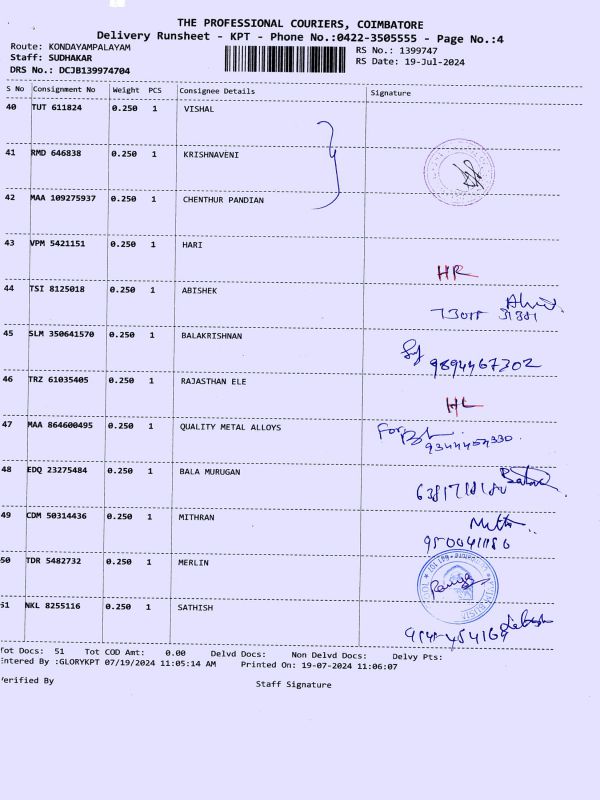 THE PROFESSIONAL COURIERS, COIMBATORE
Delivery Runsheet - KPT - Phone No.:0422-3505555 - Page No.:4
Route: KONDAYAMPALAYAM RS No.: 1399747
Staff: SUDHAKAR RS Date: 19-Jul-2024
DRS No.: DCJB139974704
S No Consignment No Weight PCS Consignee Details Signature
40 TUT 611824 0.250 1 VISHAL
41 RMD 646838 0.250 1 KRISHNAVENI
42 MAA 109275937 0.250 1 CHENTHUR PANDIAN
43 VPM 5421151 0.250 1 HARI
HR
44 TSI 8125018 0.250 1 ABISHEK
45 SLM 350641570 0.250 1 BALAKRISHNAN
9894467302
46 TRZ 61035405 0.250 1 RAJASTHAN ELE
HL
47 MAA 864600495 0.250 1 QUALITY METAL ALLOYS
For
48 EDQ 23275484 0.250 1 BALA MURUGAN
49 CDM 50314436 0.250 1 MITHRAN
50 TDR 5482732 0.250 1 MERLIN
51 NKL 8255116 0.250 1 SATHISH
Tot Docs: 51 Tot COD Amt: 0.00 Delvd Docs: Non Delvd Docs: Delvy Pts:
Entered By :GLORYKPT 07/19/2024 11:05:14 AM Printed On: 19-07-2024 11:06:07
Verified By Staff Signature